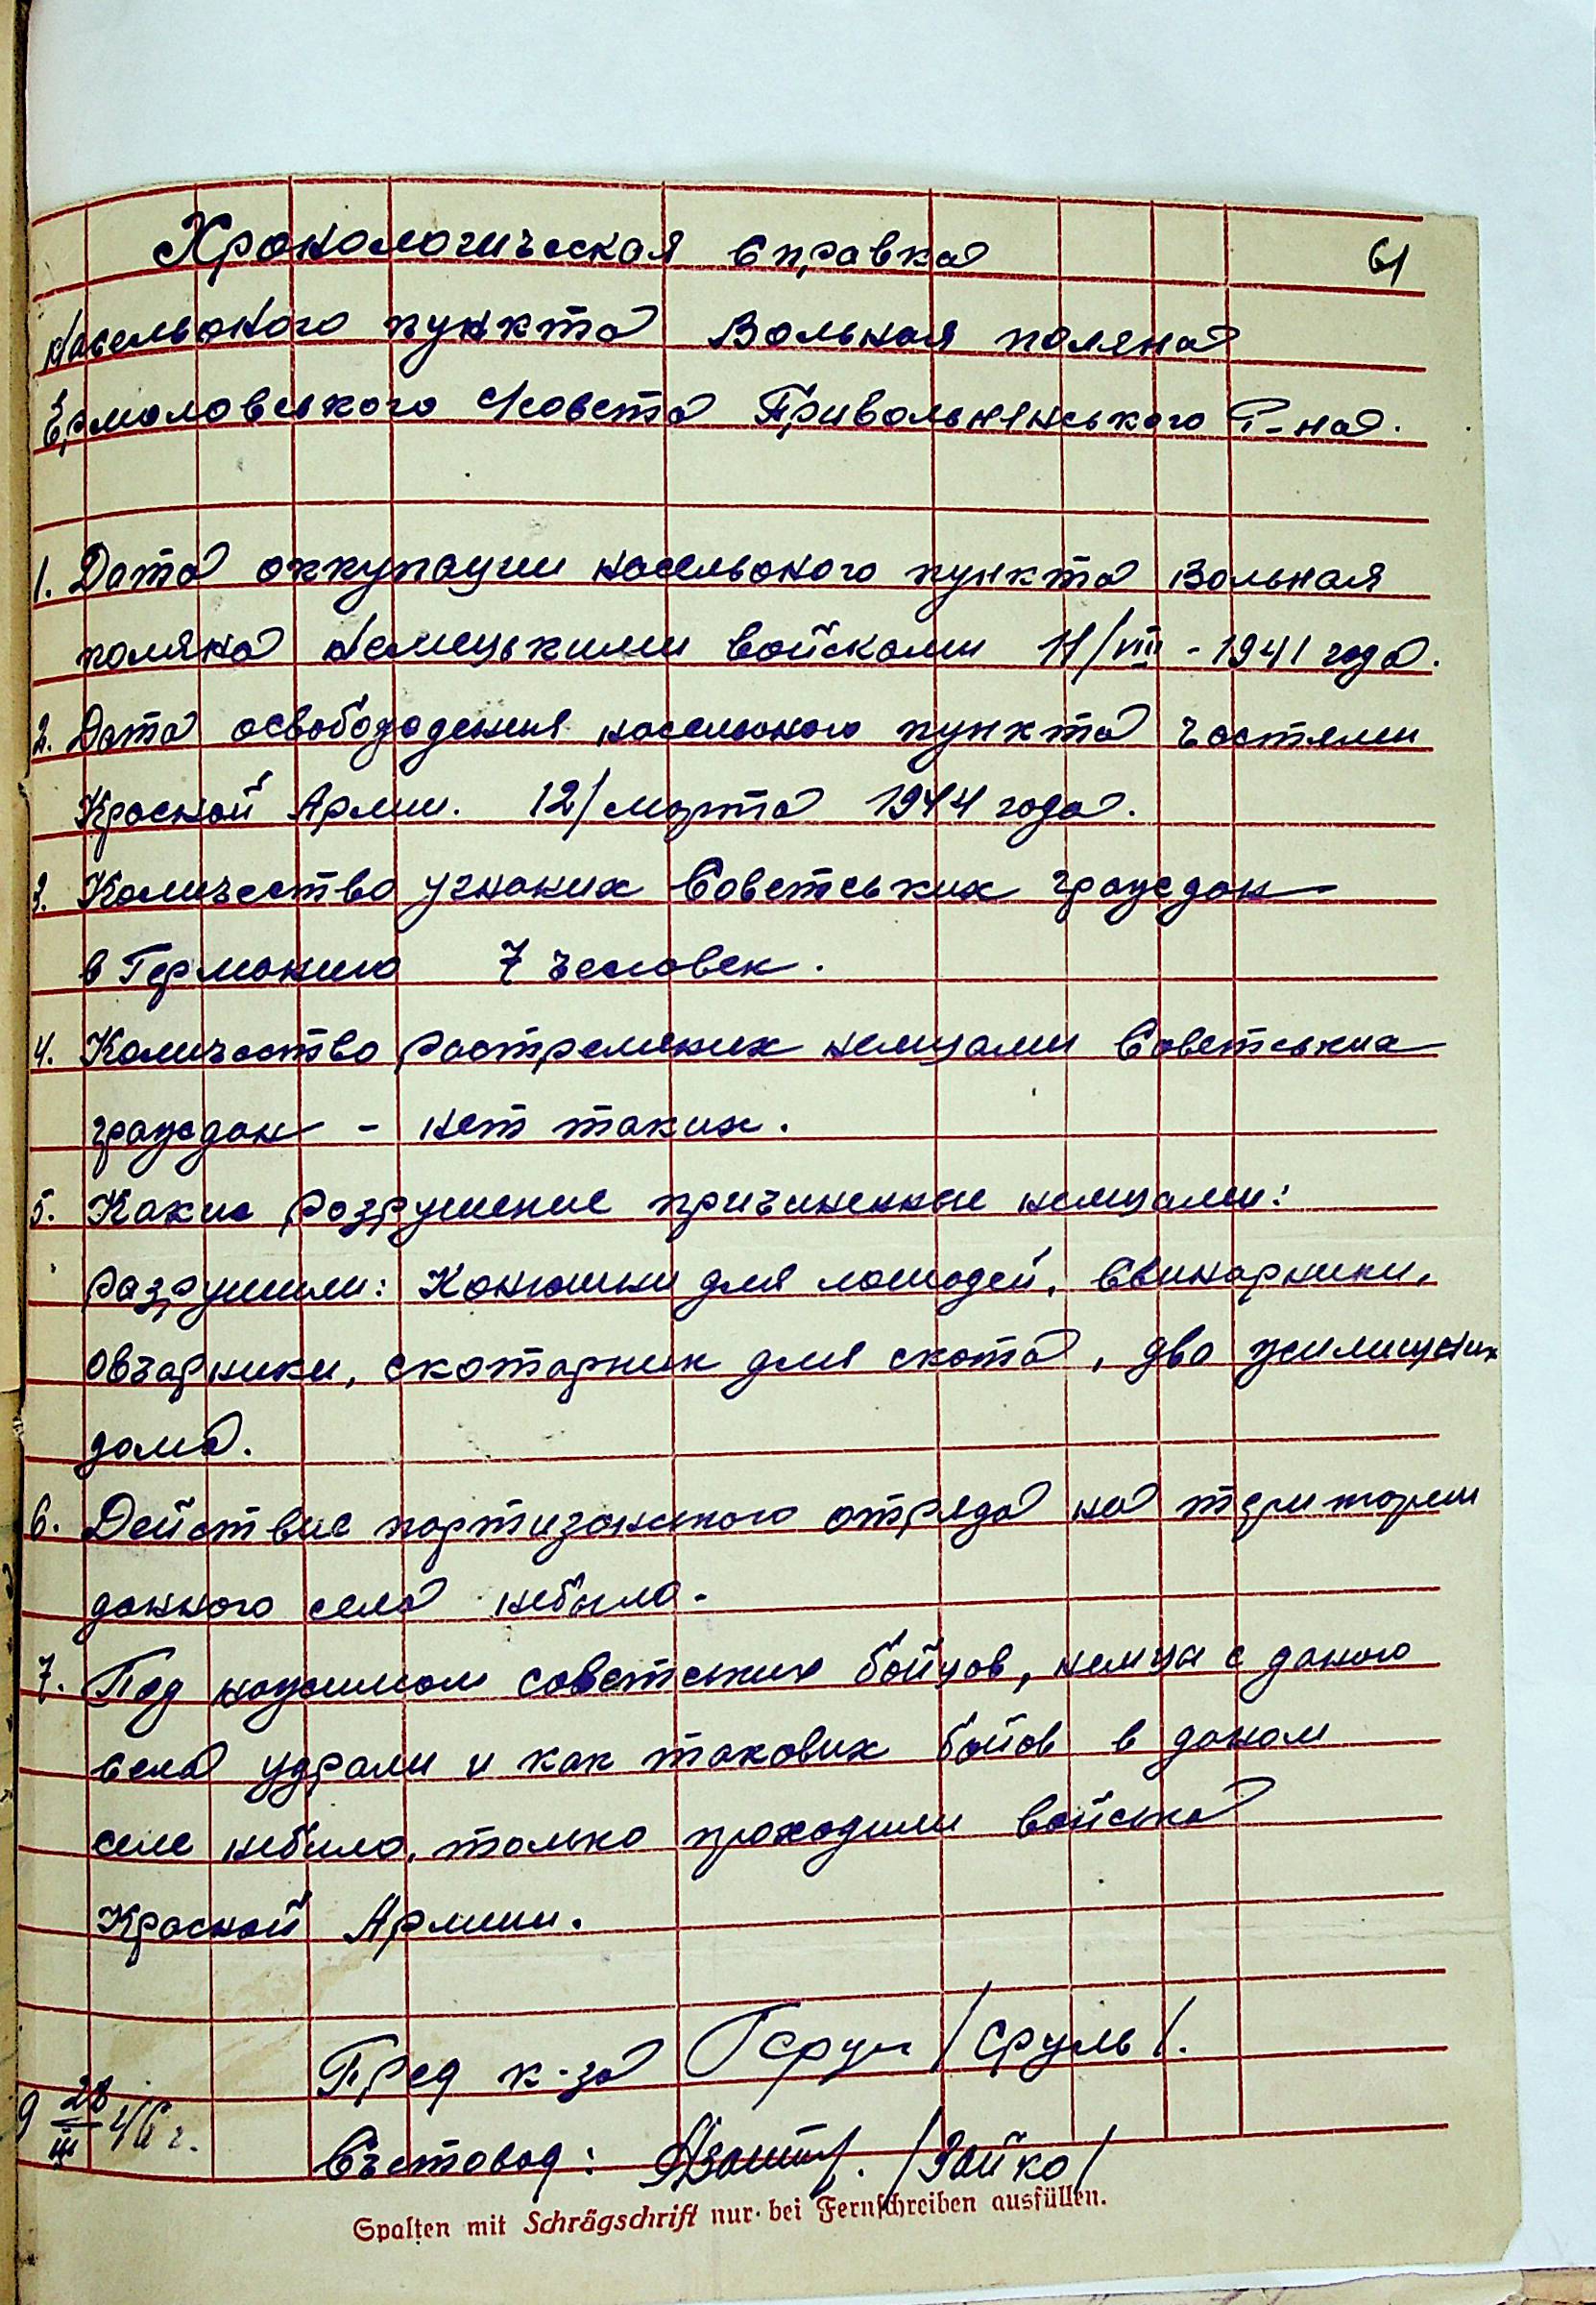 Хронологическая Справка
61
Населеного пункта Вольная поляна
Ермоловського С/совета Привольнянського Р-на.
1. Дата оккупации населеного пункта Вольная
поляна Немецькими войсками 11/VIII - 1941 года.
2. Дата освобождения населеного пункта частями
Красной Арми. 12/марта 1944 года.
3. Количество угнаних Советських граждан
в Германию 7 человек.
4. Количество растреляних немцами Советських
граждан - нет таких.
5. Какие разрушение причиненные немцами:
разрушили: Конюшни для лошадей, Свинарники,
овчарники, скотарник для скота, два жилищних
дома.
6. Действие партизанського отряда на територии
данного села небыло.
7. Под нажимом советських бойцов, немцы с даного
села удрали и как такових боёв в даном
селе небило, только проходили войска
Красной Армии.
Пред к-за /Сруль/.
28/III 46 г.
Счетовод: /Зайко/
Spalten mit Schrägschrift nur bei Fernschreiben ausfüllen.